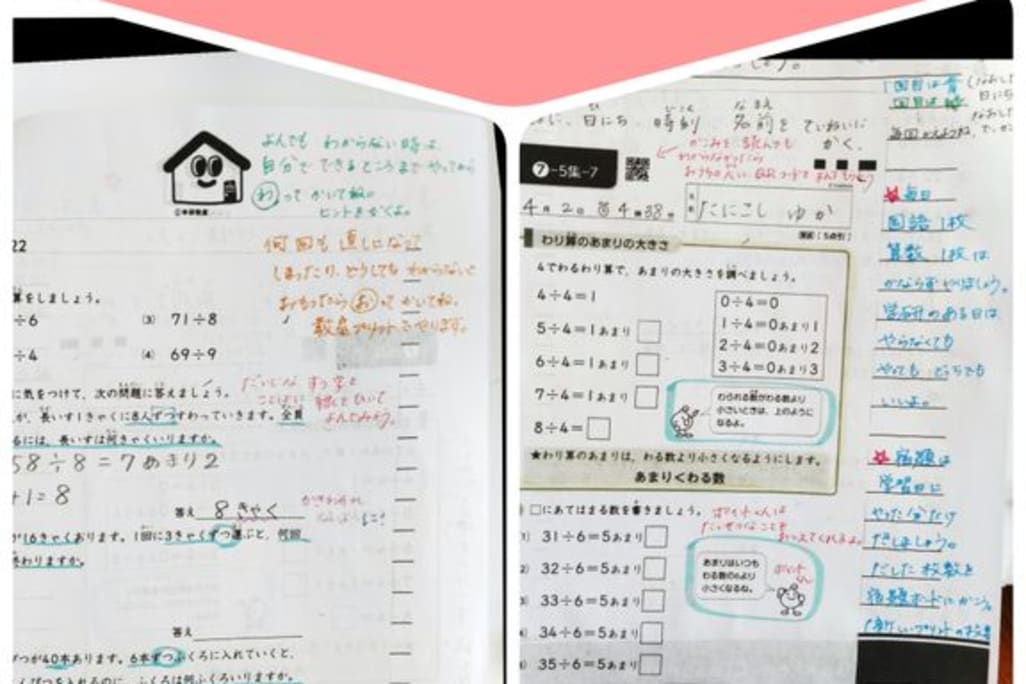 よんでも わからない時は
自分で できるところまで やってから
わ って かいてね。
ヒントをかくよ。
何回も 直しになって
しまったり、どうしても わからないと
おもったら お って かいてね。
教室プリントで やります。
22
算をしましょう。
÷6
(3) 71÷8
÷4
(4) 69÷9
に気をつけて、次の問題に答えましょう。
だいじな すう字と
ことばに 線をひいて
よんでみよう。
が、長いす1きゃくに8人ずつすわっていきます。全員
るには、長いすは何きゃくいりますか。
58÷8=7あまり2
+1=8
答え 8きゃく
が16きゃくあります。1回に3きゃくずつ運ぶと、何回
終わりますか。
答え
ぴつが40本あります。6本ずつふくろに入れていくと、
んぴつを入れるのに、ふくろは何ふくろいりますか。
日にち、時刻、名前を ていねいに
かく。
7-5集-7
4月2日 4時38分
たにこし ゆか
わり算のあまりの大きさ
4でわるわり算で、あまりの大きさを調べましょう。
4÷4=1
5÷4=1あまり□
6÷4=1あまり□
7÷4=1あまり□
8÷4=□
0÷4=0
1÷4=0あまり1
2÷4=0あまり2
3÷4=0あまり3
わられる数がわる数より
小さいときは、上のように
なるよ。
★わり算のあまりは、わる数より小さくなるようにします。
あまり<わる数
□にあてはまる数を書きましょう。
31÷6=5あまり□
32÷6=5あまり□
33÷6=5あまり□
34÷6=5あまり□
35÷6=5あまり□
あまりはいつも
わる数の6より
小さくなるね。
1回目は青
毎日
国語 1枚
算数 1枚は
かならずやりましょう。
学研のある日は
やらなくても
やっても どちらでも
いいよ。
宿題は
学習日に
やった分だけ
だしましょう。
だした枚数を
宿題ボードにかこう。